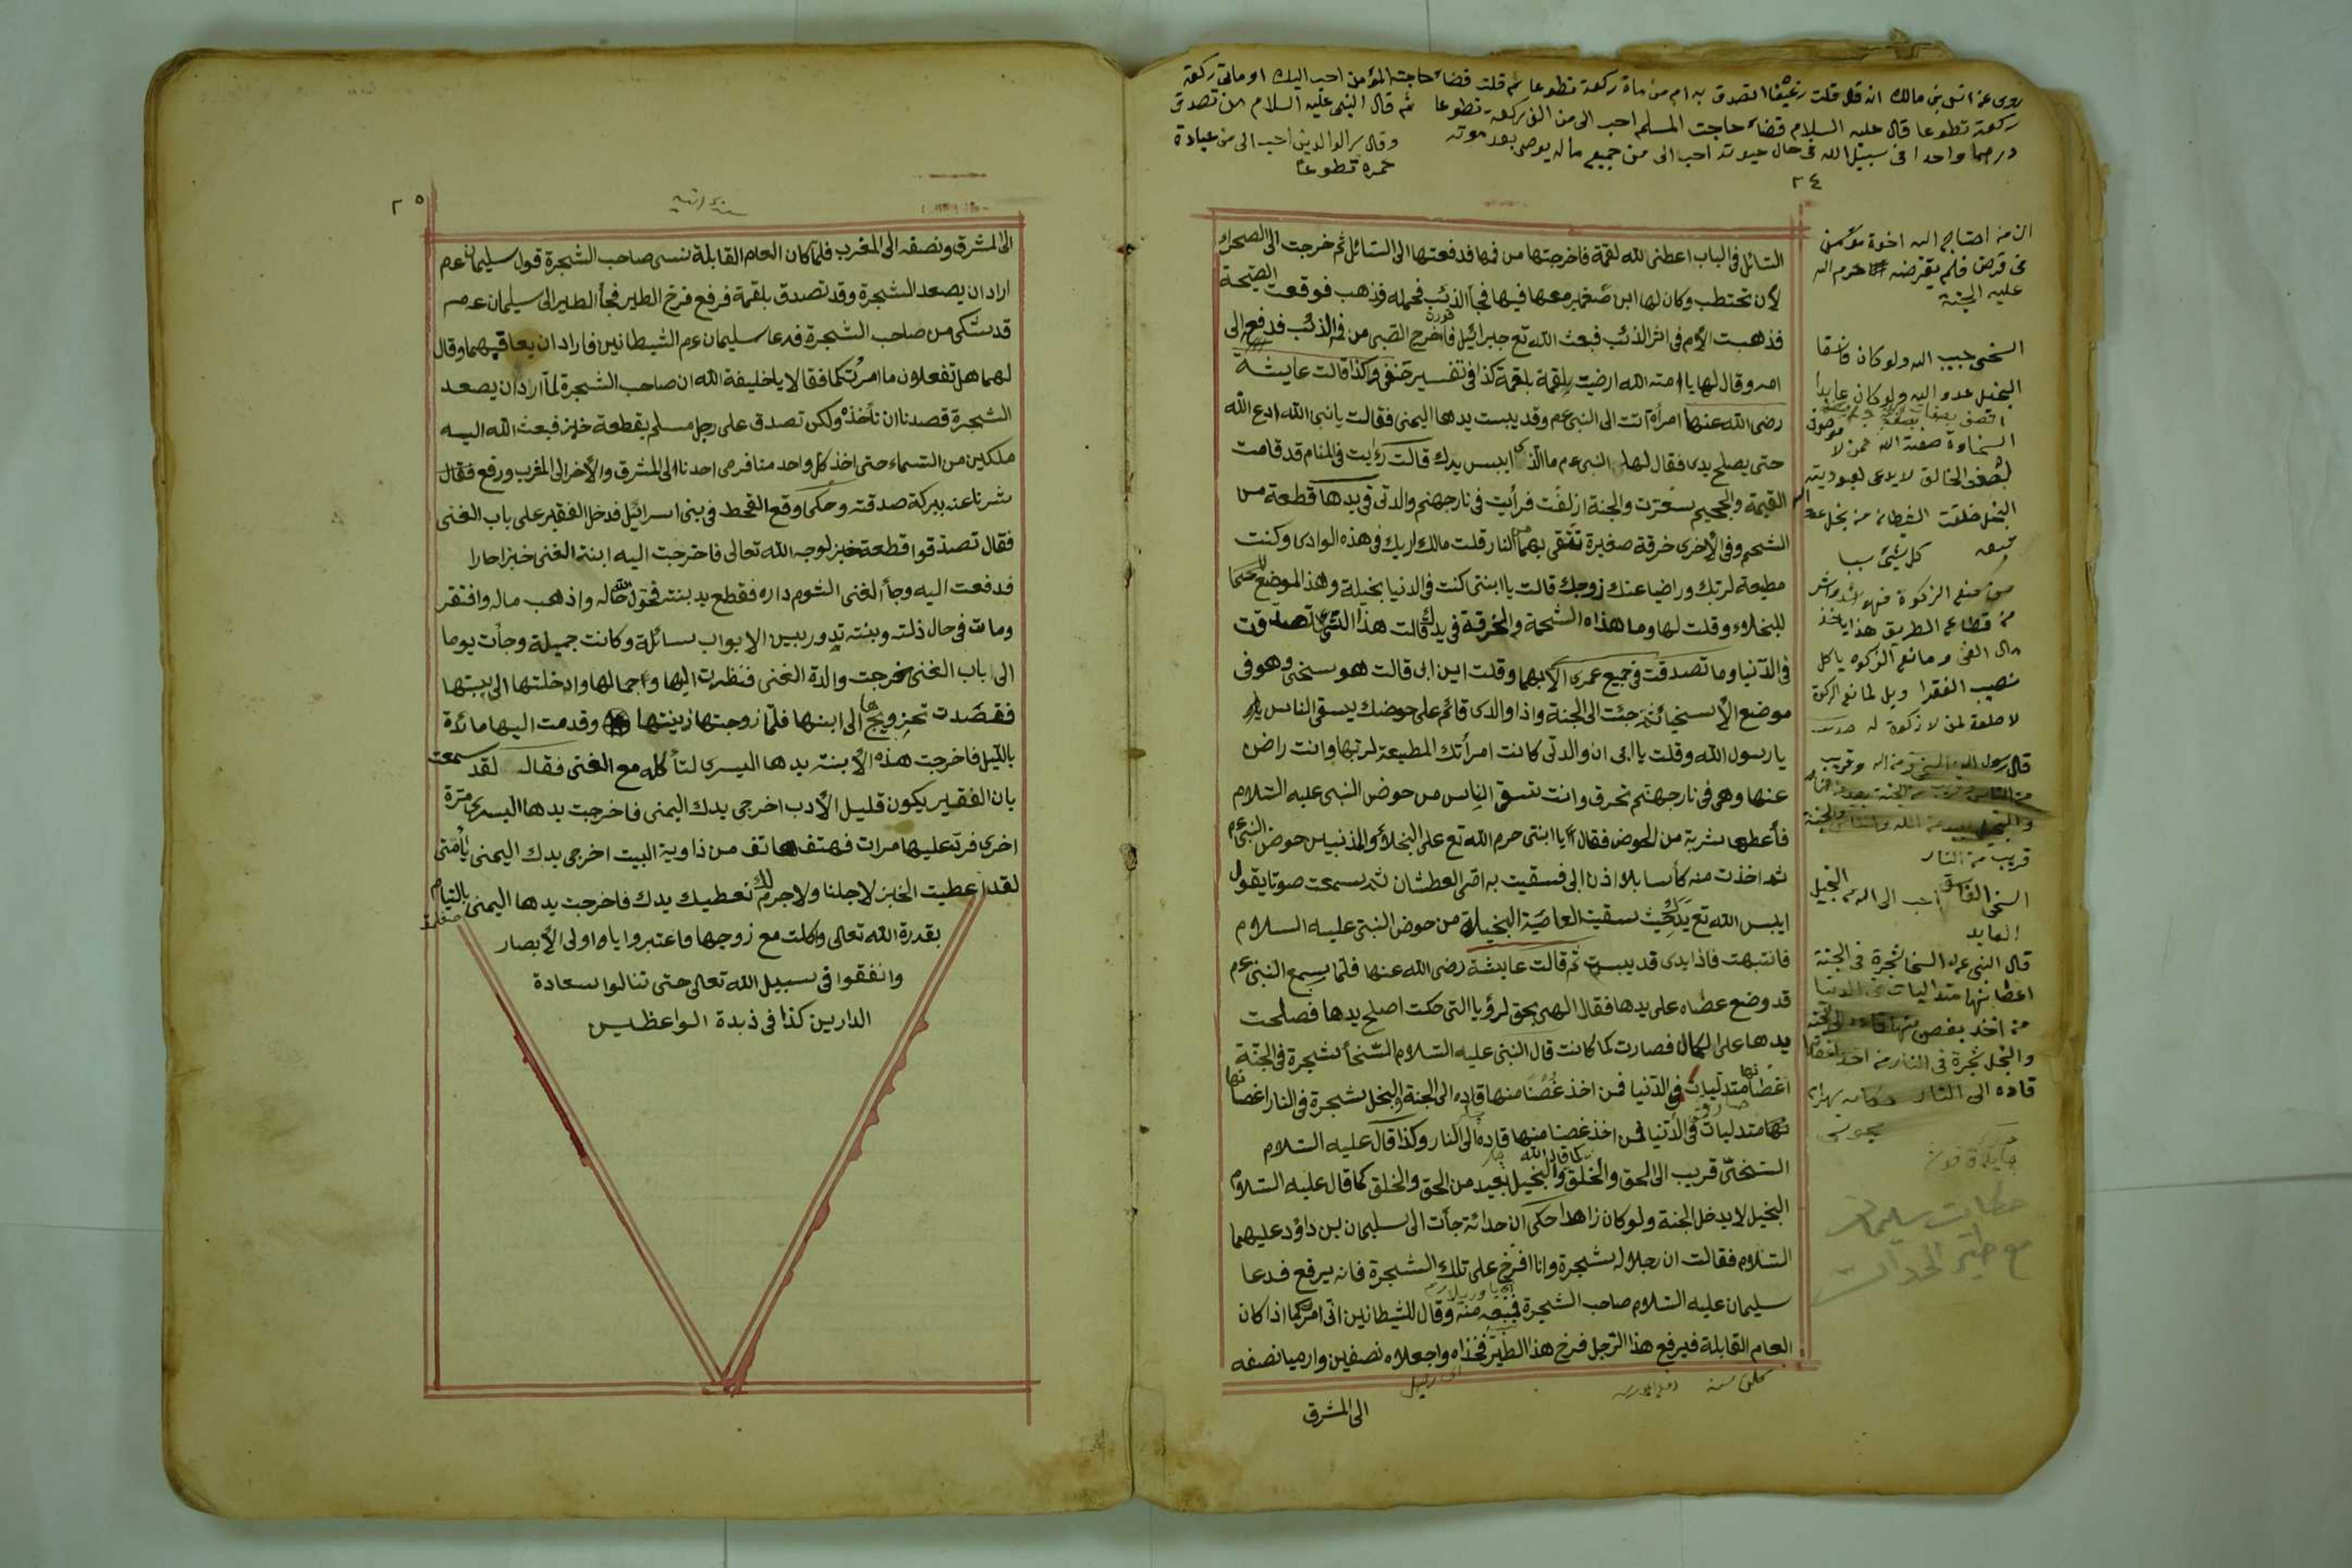 روى عن انس بن مالك انه قال قلت رغيفا اتصدق به ام من مأة ركعة تطوعا ثم قلت قضاء حاجت المؤمن احب اليك او مأتى ركعة
ركعة تطوعا قال عليه السلام قضاء حاجت المسلم احب الى من الف ركعة تطوعا ثم قال النبى عليه السلام من تصدق
درهما واحدا فى سبيل الله فى حال حيوته احب الى من جميع ماله يوصى بعد موته
وقال بر الوالدين احب الى من عبادة
عمره تطوعا
٢٤
السائل فى الباب اعطنى لله لقمة فاخرجتها من فمها فدفعتها الى السائل ثم خرجت الى الصحراء
لأن تحتطب وكان لها ابن صغير معها فيها فجأ الذئب فحمله فذهب فوقعت الصيحة
فذهبت الأم فى اثر الذئب فبعث الله تع جبرائيل فاخرج الصبى من فم الذئب فدفع الى
امه وقال لها يا امته الله ارضيت بلقمة بلقمة كذا فى تفسير حنفى وكذا قالت عايشة
رضى الله عنها امرأة اتت الى النبى عم وقد يبست يدها اليمنى فقالت يا نبى الله ادع الله
حتى يصلح يدى فقال لها النبى عم ما الذى ايبس يدك قالت رأيت فى المنام قد قامت
القيمة والجحيم سعرت والجنة ازلفت فرأيت فى نار جهنم والدتى فى يدها قطعة من
الشحم وفى الأخرى خرقة صغيرة تتقى بهما من النار قلت مالك اريك فى هذه الوادى وكنت
مطيعة لربك وراضيا عنك زوجك قالت يا ابنتى كنت فى الدنيا بخيلة وهذا الموضع
للبخلاء وقلت لها وما هذه الشحمة والخرقة فى يدك قالت هذا الشئ تصدقت
فى الدنيا وما تصدقت فى جميع عمرى الا بهما وقلت اين ابى قالت هو سخى وهو فى
موضع الأسخياء ثم جئت الى الجنة واذا والدى قائم على حوضك يسقى الناس
يا رسول الله وقلت يا ابى ان والدتى كانت امرأتك المطيعة لربها وانت راض
عنها وهى فى نار جهنم تحرق وانت تسقى الناس من حوض النبى عليه السلام
فأعطها شربة من الحوض فقال يا ابنتى حرم الله تع على البخلاء والمذنبين حوض النبى عم
ثم اخذت منه كأسا بلا اذن ابى فسقيت به امى العطشان ثم سمعت صوتا يقول
ايبس الله تع يدك حيث سقيت العاصية البخيلة من حوض النبى عليه السلام
فانتبهت فاذا يدى قد يبست ثم قالت عايشة رضى الله عنها فلما سمع النبى عم
قد وضع عصاه على يدها فقال الهى بحق لرؤيا التى حكت اصلح يدها فصلحت
يدها على الكمال فصارت كما كانت قال النبى عليه السلام السخأ شجرة فى الجنة
اغصانها متدليات فى الدنيا فمن اخذ غصنا منها قاده الى الجنة والبخل شجرة فى النار اغصانها
متدليات فى الدنيا فمن اخذ غصنا منها قاده الى النار وكذا قال عليه السلام
السخى قريب الى الحق والخلق والبخيل بعيد من الحق والخلق كما قال عليه السلام
البخيل لا يدخل الجنة ولو كان زاهدا حكى ان حدائة جأت الى سليمان بن داؤد عليهما
السلام فقالت ان رجلا له شجرة وانا افرخ على تلك الشجرة فانه يرفع فدعا
سليمان عليه السلام صاحب الشجرة فمنعه منه وقال للشيطانين انى امركما اذا كان
العام القابلة فيرفع هذا الرجل فرخ هذا الطير فخذاه واجعلاه نصفين وارميا نصفه
الى المشرق
ان من احتاج اليه اخوه مؤمن
فى قرض فلم يقرضه حرم الله
عليه الجنة
السخى حبيب الله ولو كان فاسقا
البخيل عدو الله ولو كان عابدا
السخاوة صفة الله فمن لا
كل شئ سببا
من منع الزكوة فهو اشد
من قطاع الطريق هذا يأخذ
مال الغنى ومانع الزكوة يأكل
نصيب الفقرا ويل لمانع الزكوة
لا صلوة لمن لا زكوة له
قال رسول الله السخى قريب من الله وقريب
من الناس وقريب من الجنة بعيد من النار
والبخيل بعيد من الله والناس والجنة
قريب من النار
السخى الفاسق احب الى الله من البخيل
العابد
قال النبى عم السخا شجرة فى الجنة
اغصانها متدليات فى الدنيا
من اخذ بغصن منها قاده الى الجنة
والبخل شجرة فى النار من اخذ اغصانها
قاده الى النار
حكايت سليمان
مع طير الحدات
٢٥
الى المشرق ونصفه الى المغرب فلما كان العام القابلة نسى صاحب الشجرة قول سليمان عم
اراد ان يصعد الشجرة وقد تصدق بلقمة فرفع فرخ الطير فجأ الطير الى سليمان عم
قد شكى من صاحب الشجرة فدعا سليمان عم الشيطانين فاراد ان يعاقبهما وقال
لهما هل تفعلون ما امرتكما فقالا يا خليفة الله ان صاحب الشجرة لما اراد ان يصعد
الشجرة قصدنا ان نأخذه ولكن تصدق على رجل مسلم بقطعة خبز فبعث الله اليه
ملكين من السماء حتى اخذ كل واحد منا فرمى احدنا الى المشرق والأخر الى المغرب ورفع فقال
شرنا عنه ببركة صدقته وحكى وقع القحط فى بنى اسرائيل فدخل الفقير على باب الغنى
فقال تصدقوا قطعة خبز لوجه الله تعالى فاخرجت اليه ابنة الغنى خبزا حارا
فدفعت اليه وجأ الغنى الشوم داره فقطع يد بنته فحول الله حاله واذهب ماله وافتقر
ومات فى حال ذلته وبنته تدور بين الابواب سائلة وكانت جميلة وجأت يوما
الى باب الغنى فخرجت والدة الغنى فنظرت اليها وجمالها وادخلتها الى بيتها
فقصدت تزويجها الى ابنها فلما زوجتها زينتها وقدمت اليها مائدة
بالليل فاخرجت هذه الابنة يدها اليسرى لتأكله مع الغنى فقال لقد سمعت
بان الفقير يكون قليل الأدب اخرجى يدك اليمنى فاخرجت يدها اليسرى مرة
اخرى فرد عليها مرات فهتف هاتف من ذاوية البيت اخرجى يدك اليمنى يا امتى
لقد اعطيت الخبز لاجلنا ولا جرم نعطيك يدك فاخرجت يدها اليمنى بالتيام
بقدرة الله تعالى واكلت مع زوجها فاعتبروا يا اولى الأبصار
وانفقوا فى سبيل الله تعالى حتى تنالوا سعادة
الدارين كذا فى ذبدة الواعظين